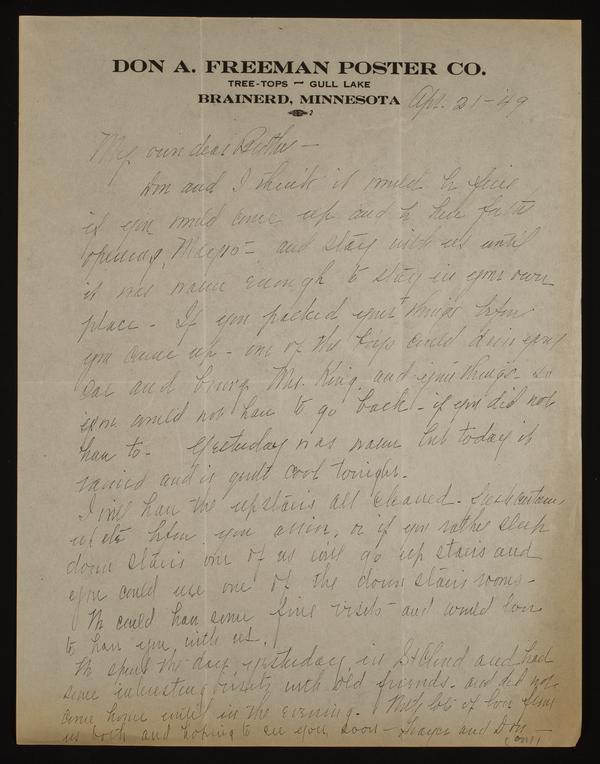 DON A. FREEMAN POSTER CO.
TREE-TOPS — GULL LAKE
BRAINERD, MINNESOTA Apr. 21-49
My own dear
Don and I think it would be fine
if you would come up and be here for the
opening, and stay with us until
it was warm enough to stay in your own
place - If you packed your things before
you came up - one of the boys could drive your
car and bring Mrs. King and your things so
you would not have to go back - if you did not
have to - Yesterday was warm but today it
rained and is quite cool tonight.
I will have the upstairs all cleaned - fresh curtains
up etc before you arrive, or if you rather sleep
down stairs one of us will go up stairs and
you could use one of the down stairs rooms -
We could have some fine visits - and would love
to have you with us.
We spent the day yesterday in St Cloud and had
some interesting visits with old friends - and did not
come home until in the evening - With lots of love from
us both and hoping to see you soon - and Don